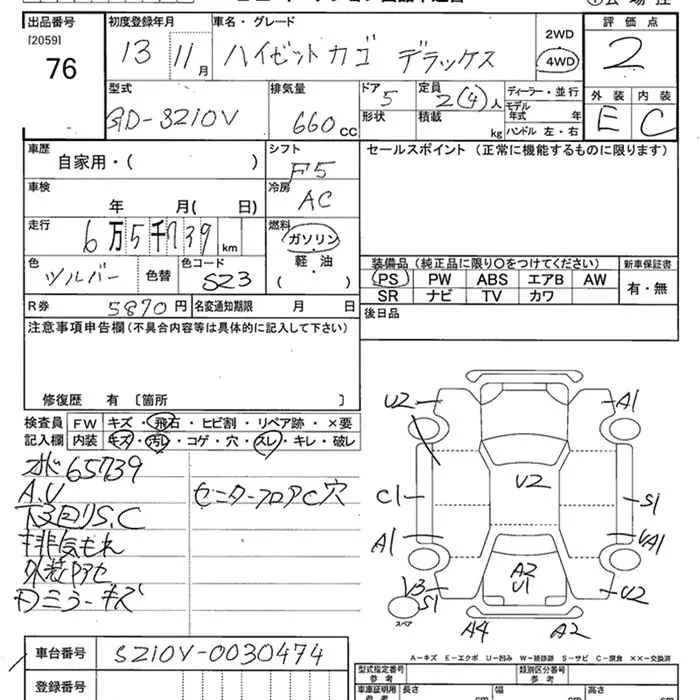 出品番号 初度登録年月 車名・グレード 2WD 評価点
[2059] 76 13 11月 ハイゼットカゴ デラックス 4WD 2
型式 排気量 ドア 定員 ディーラー・並行 外装 内装
GD-S210V 660cc 5 2(4)人 モデル年式 年 E C
形状 積載 kg ハンドル 左・右
車歴 シフト セールスポイント(正常に機能するものに限ります)
自家用・( ) F5
車検 冷房
年 月( 日) AC
走行 燃料
6万5千739km ガソリン
軽・油
( )
色 色替 色コード 装備品(純正品に限り○をつけてください) 新車保証書
シルバー SZ3 PS PW ABS エアB AW 有・無
SR ナビ TV カワ
R券 5870円 名変通知期限 月 日 後日品
注意事項申告欄(不具合内容等は具体的に記入して下さい)
修復歴 有 [箇所 ]
検査員 FW キズ・飛石・ヒビ割・リペア跡・×要
記入欄 内装 キズ・汚レ・コゲ・穴・スレ・キレ・破レ
オド65739
A.U センターフロアC穴
下回りS.C
排気もれ
外装アセ
ミラーキズ
U2 A1
U2
C1 S1
A1 UA1
A2
U1
V3
S1 U2
スペア
A4 A2
車台番号 S210V-0030474
登録番号
A-キズ E-エクボ U-凹み W-補修跡 S-サビ C-腐食 ××-交換済
型式指定番号 参考 類別区分番号 参考
車庫証明用 参考 長さ cm 幅 cm 高さ cm